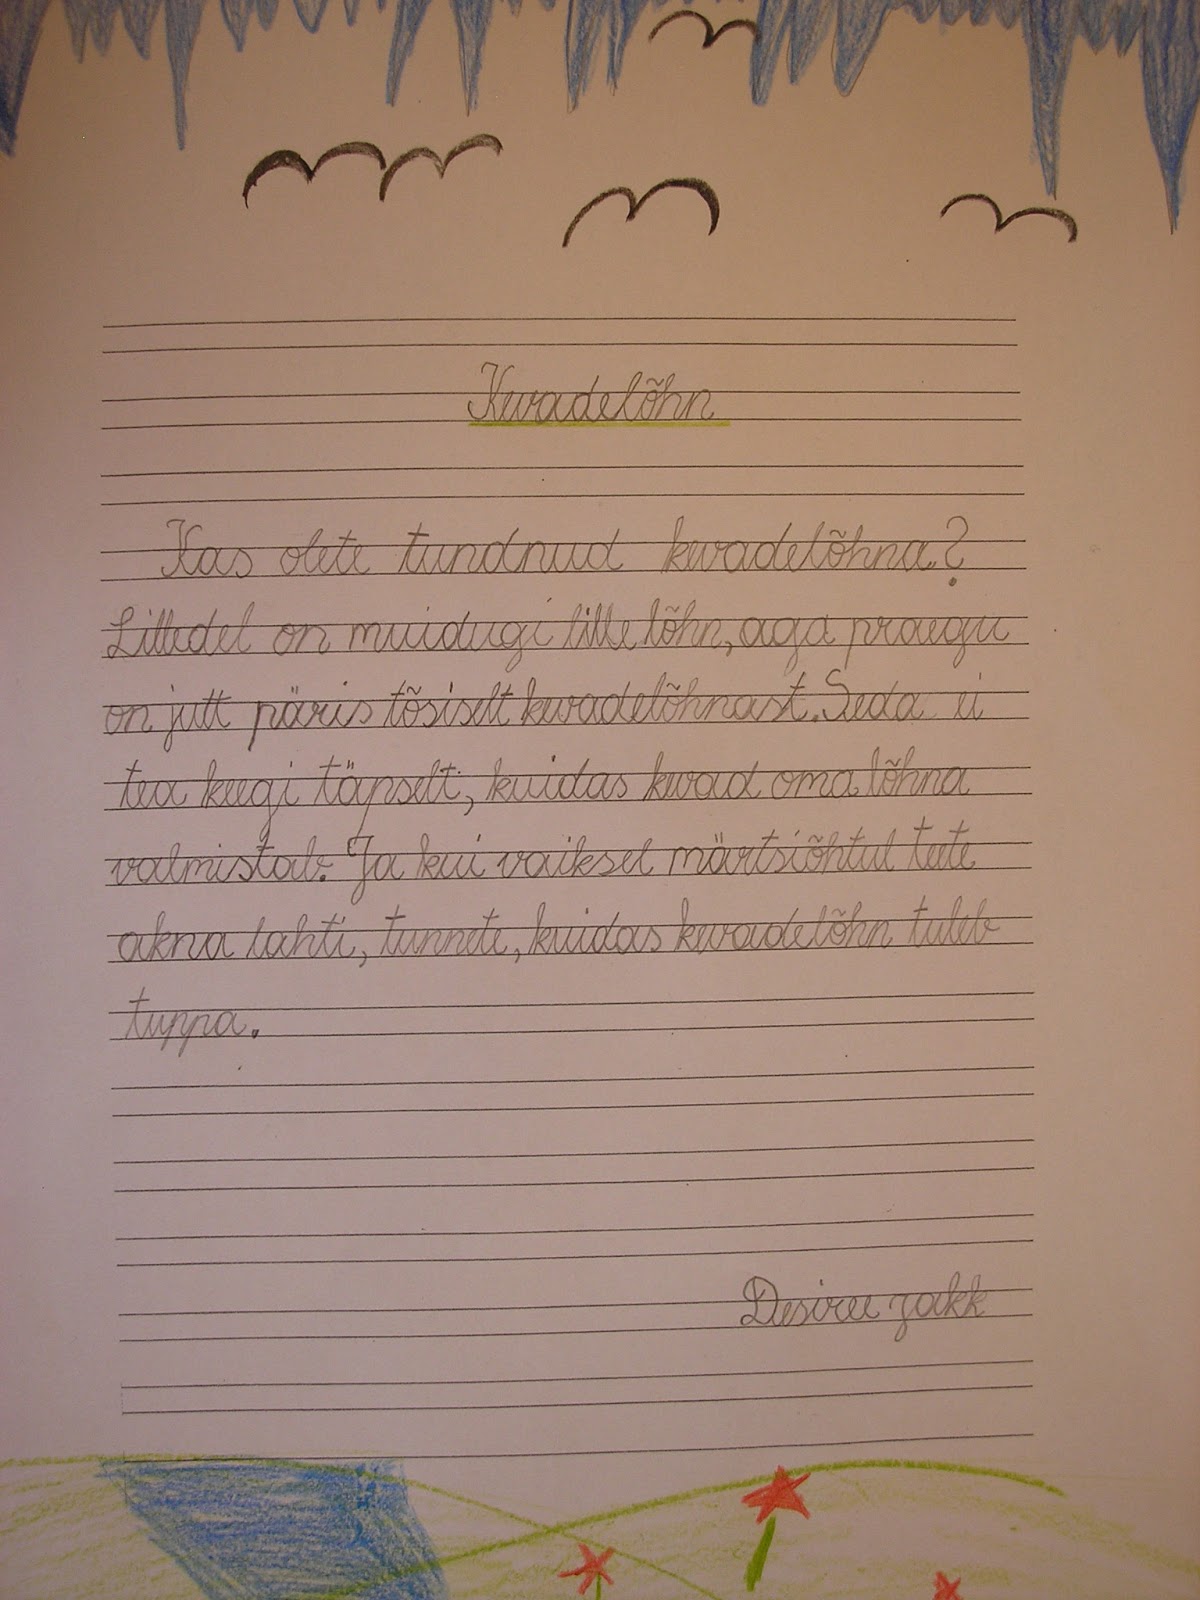 Kevadelõhn
Kas olete tundnud kevadelõhna?
Lilledel on muidugi lille lõhn, aga praegu
on jutt päris tõsiselt kevadelõhnast. Seda ei
tea keegi täpselt, kuidas kevad oma lõhna
valmistab. Ja kui vaiksel märtsiõhtul teete
akna lahti, tunnete, kuidas kevadelõhn tuleb
tuppa.
Desiree